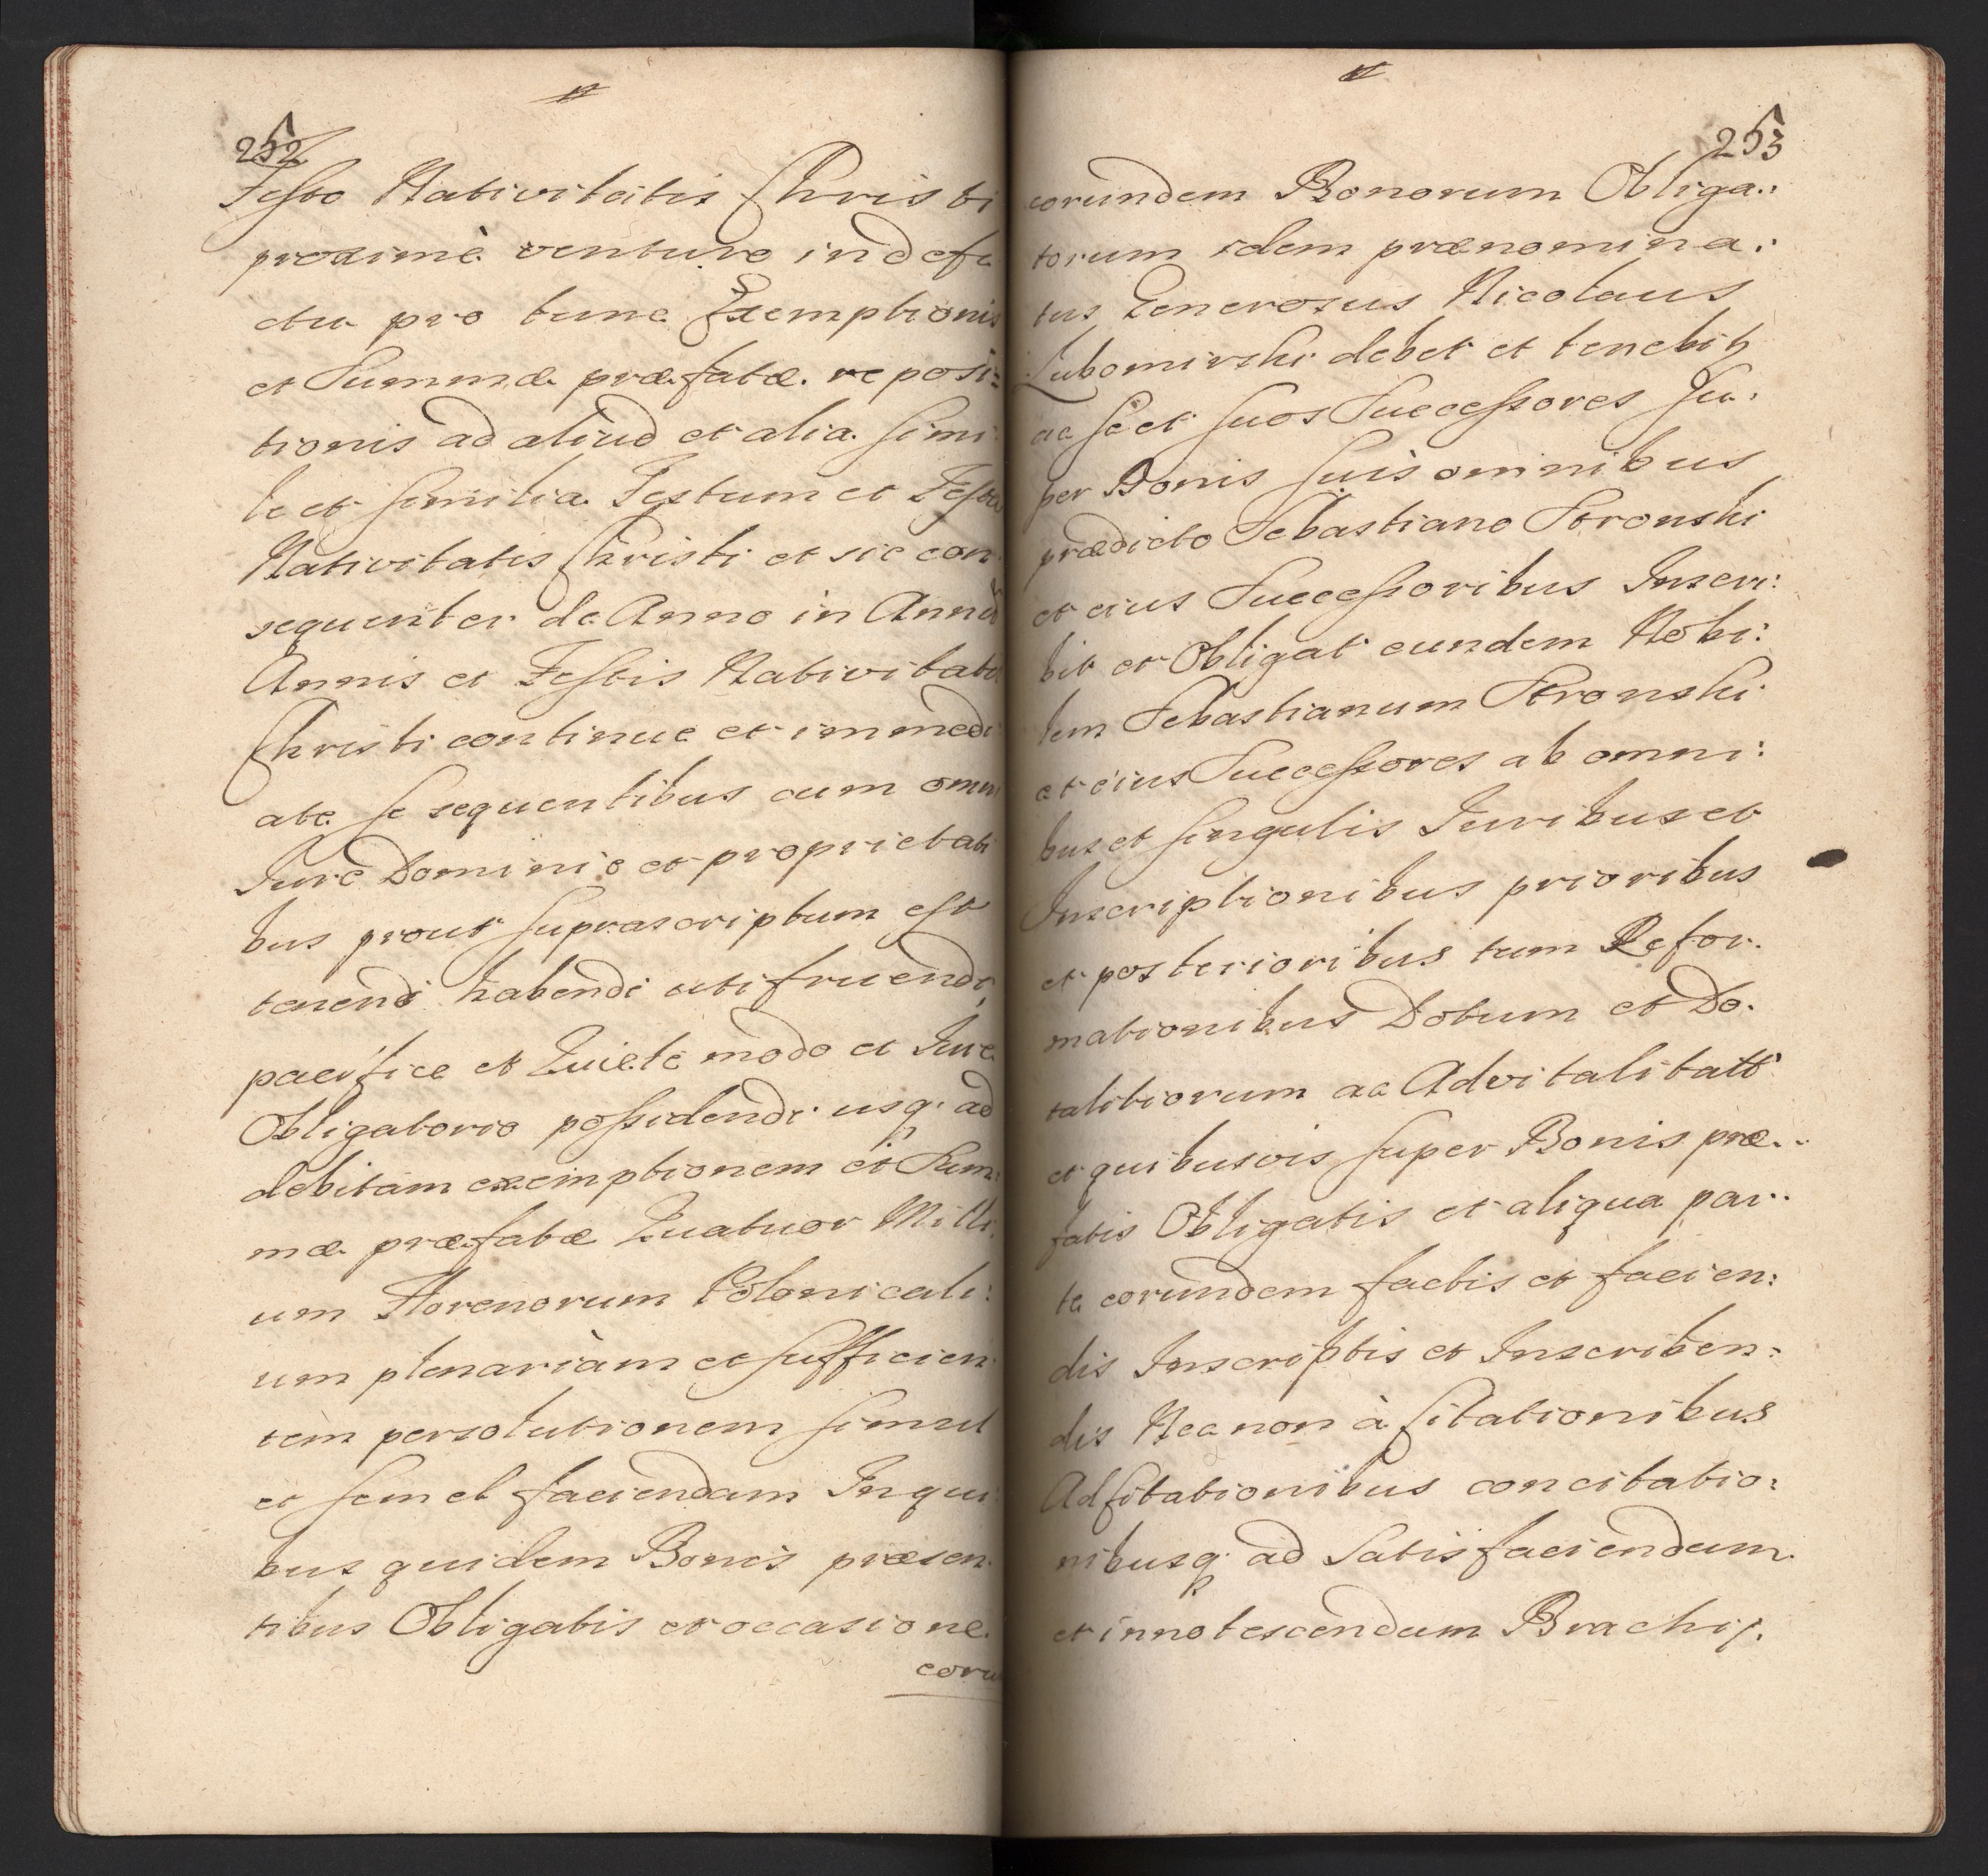 252
Festo Nativitatis Christi
proximè venturo in defe
ctu pro tunc Exemptionis
et Summæ præfatæ reposi=
tionis ad aliud et alia simi
le et similia Festum et Festa
Nativitatis Christi et sic con
sequenter de Anno in Annũ
Annis et Festis Nativitatis
Christi continue et immedi
ate se sequentibus cum omni
Jure Dominio et proprietati
bus prout suprascriptum est
tenendi habendi utifruendi,
pacifice et Quiete modo et Jure
Obligatorio possidendi usq; ad
debitam exemptionem et Sum:
mæ præfatæ Quatuor Milli
um Florenorum Polonicali:
um plenariam et sufficien
tem persolutionem simul
et semel faciendam In qui
bus quidem Bonis præsen
tibus Obligatis et occasione
coru
253
eorundem Bonorum Obliga.:
torum idem prænomina.:
tus Generosus Nicolaus
Lubomirski debet et tenebitq
ac se et suos Successores Su.
per Bonis suis omnibus
prædicto Sebastiano Stronski
et eius Successoribus Inscri:
bit et Obligat eundem Nobi:
lem Sebastianum Stronski
et eius Successores ab omni:
bus et singulis Juribus et
Inscriptionibus prioribus
et posterioribus tum Refor.
mationibus Dotum et Do.
talitiorum ac Advitalitatt
et quibusvis super Bonis præ..
fatis Obligatis et aliqua par..
te eorundem factis et facien:
dis Inscriptis et Inscriben=
dis Nec non à Citationibus
Adcitationibus concitatio:
nibusq; ad satisfaciendum
et innotescendum Brachij.